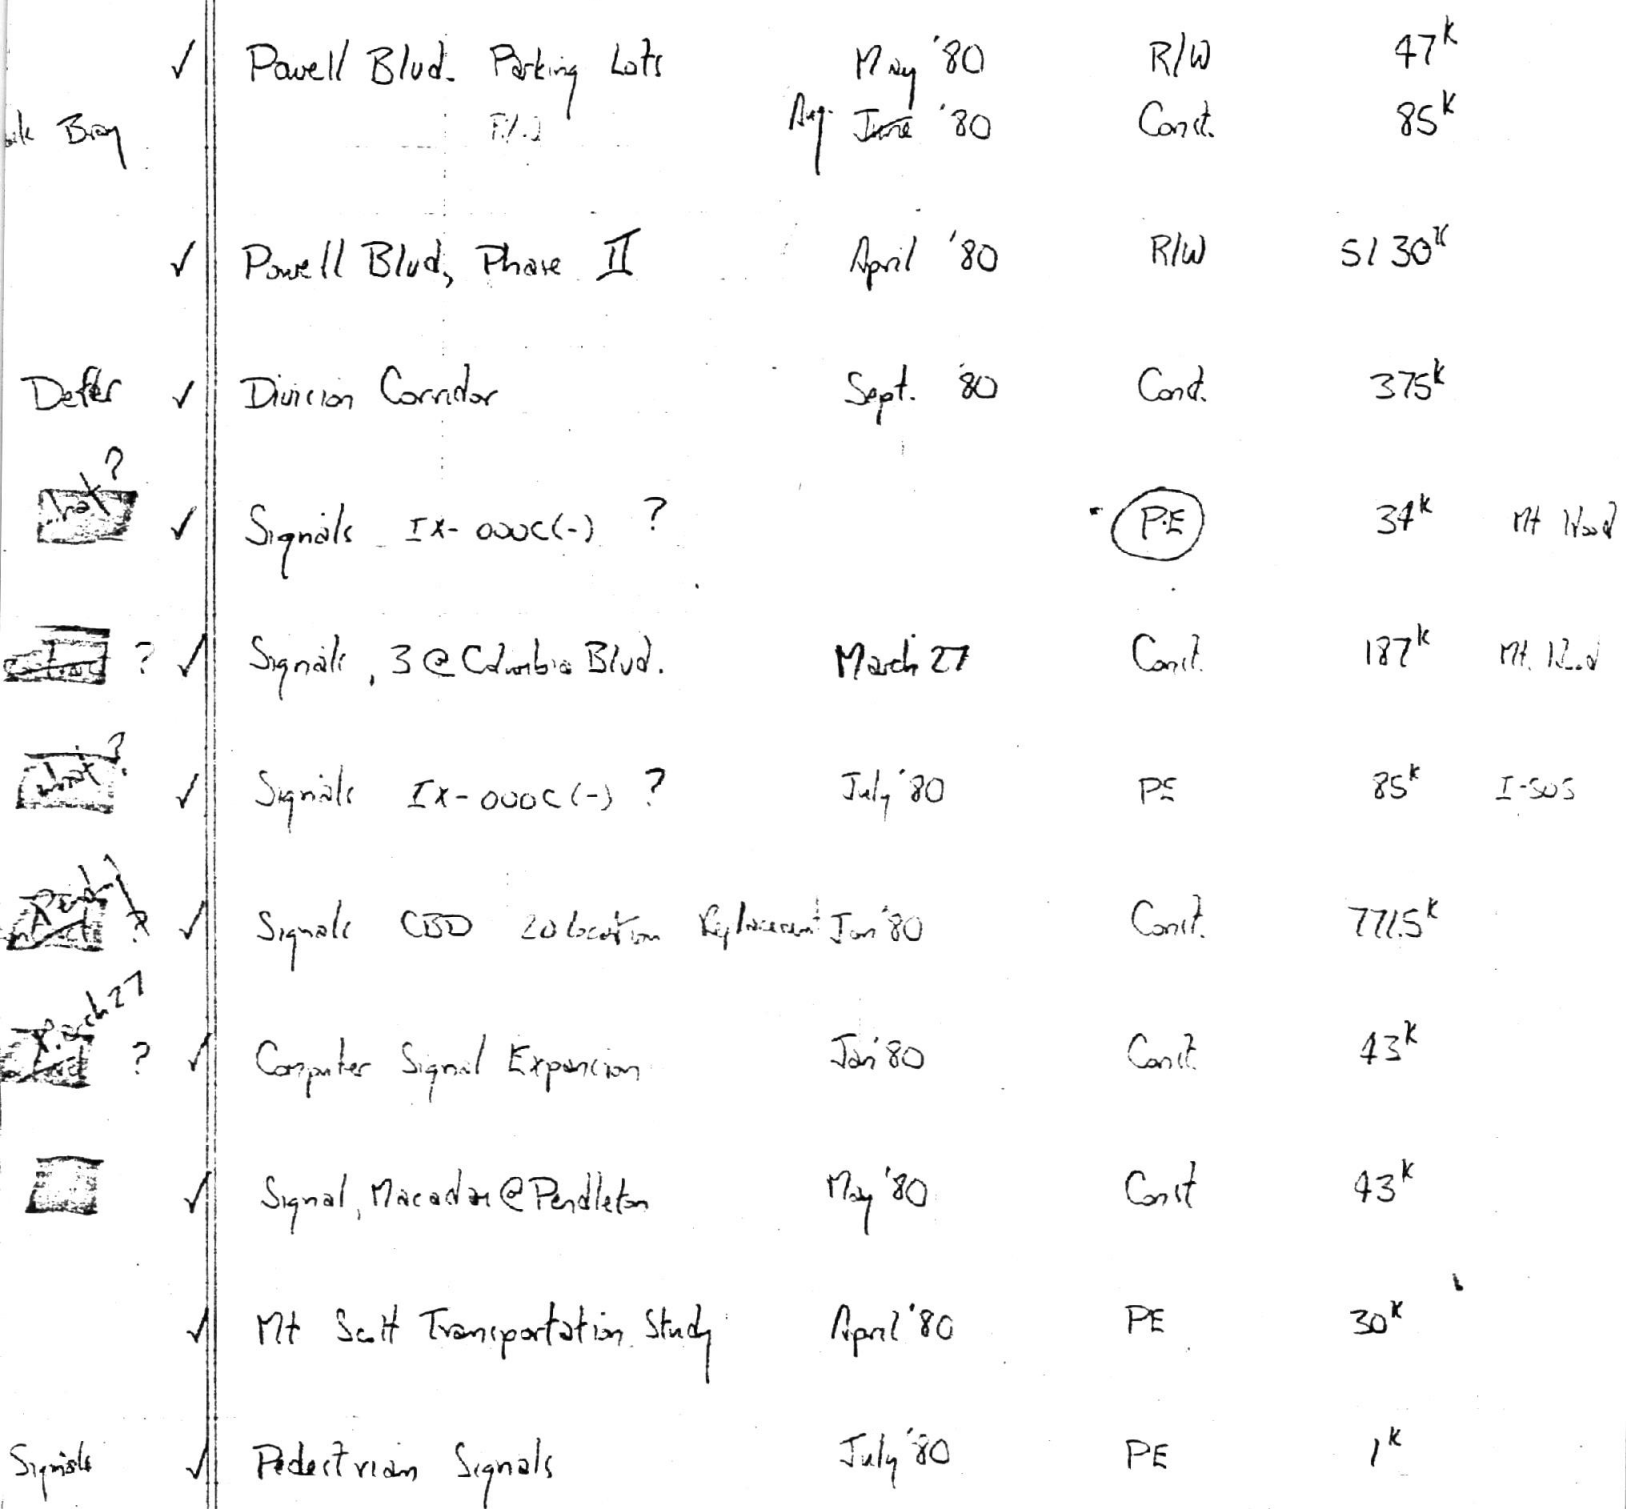 ✓ Powell Blvd. Parking Lots May '80 R/W 47K
Aug. June '80 Const. 85K
✓ Powell Blvd, Phase II April '80 R/W 5130K
Defer ✓ Division Corridor Sept. '80 Const. 375K
what? ✓ Signals IX-000C(-) ? PE 34K Mt Hood
? ✓ Signals, 3 @ Columbia Blvd. March 27 Const. 187K Mt. Hood
what? ✓ Signals IX-000C(-) ? July '80 PE 85K I-505
? ✓ Signals CBD 20 location Replacement Jan '80 Const. 771.5K
March 27
? ✓ Computer Signal Expansion Jan '80 Const. 43K
✓ Signal, Macadam @ Pendleton May '80 Const 43K
✓ Mt Scott Transportation Study April '80 PE 30K
Signals ✓ Pedestrian Signals July '80 PE 1K